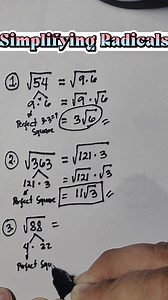 Simplifying Radicals
① √54 = √9·6
9·6 = √9·√6
Perfect 3·3=9 = 3√6
Square
② √363 = √121·3
121·3 = √121·√3
Perfect Square = 11√3
③ √88 =
4·22
Perfect Squ